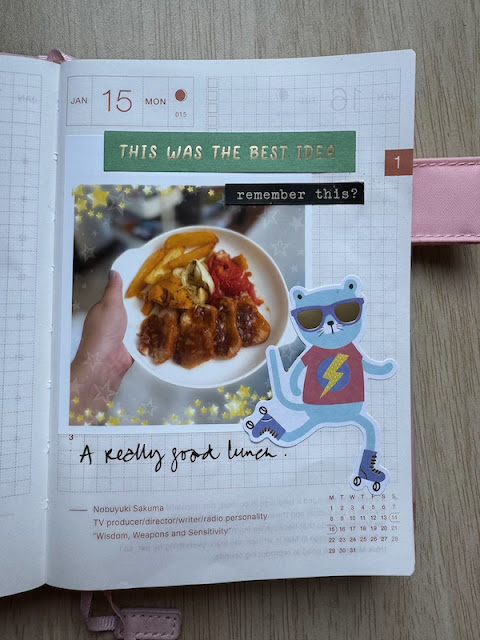 JAN 15 MON
015
THIS WAS THE BEST IDEA
1
remember this?
3
A really good lunch.
Nobuyuki Sakuma
TV producer/director/writer/radio personality
"Wisdom, Weapons and Sensitivity"
M T W T F S S
1 2 3 4 5 6 7
8 9 10 11 12 13 14
15 16 17 18 19 20 21
22 23 24 25 26 27 28
29 30 31